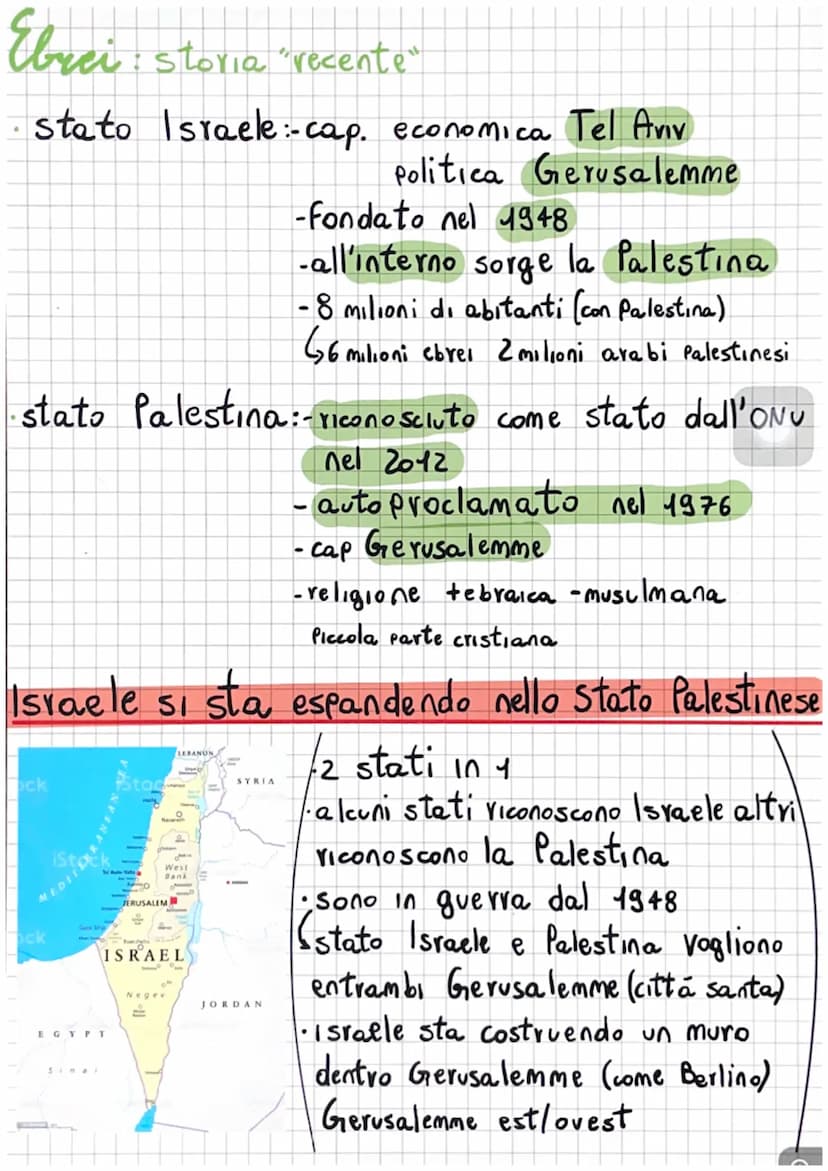 Ebrei: storia "recente"
· stato Israele:-cap. economica Tel Aviv
politica Gerusalemme
-fondato nel 1948
-all'interno sorge la Palestina
-8 milioni di abitanti (con Palestina)
↳6 milioni ebrei 2 milioni arabi palestinesi
·stato Palestina:-riconosciuto come stato dall'ONU
nel 2012
-autoproclamato nel 1976
-cap Gerusalemme
-religione +ebraica -musulmana
piccola parte cristiana
Israele si sta espandendo nello Stato Palestinese
LEBANON
SYRIA
iStock
MEDITERRANEAN SEA
Nazareth
iStock
West
Bank
JERUSALEM
ISRAEL
Negev
JORDAN
EGYPT
Sinai
·2 stati in 1
·alcuni stati riconoscono Israele altri
riconoscono la Palestina
·sono in guerra dal 1948
↳stato Israele e Palestina vogliono
entrambi Gerusalemme (cittá santa)
·israele sta costruendo un muro
dentro Gerusalemme (come Berlino)
Gerusalemme est/ovest